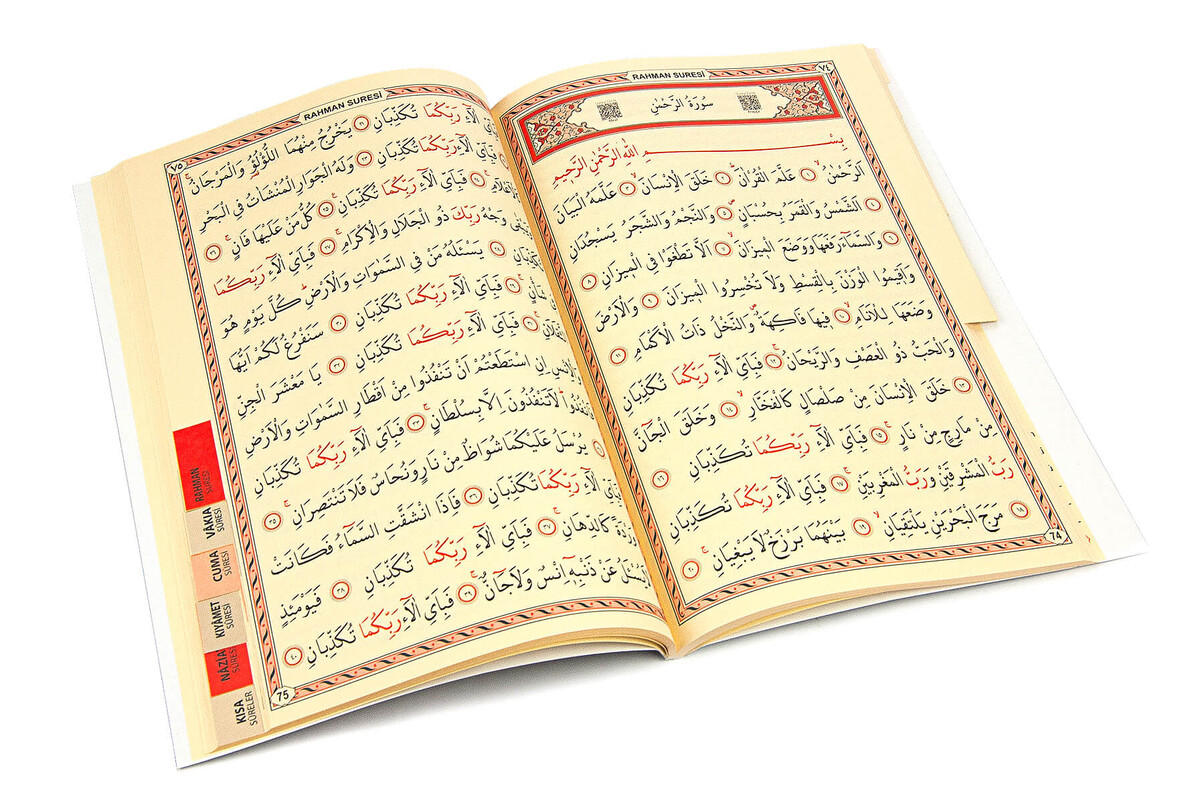 RAHMAN SURESİ
٧٤
سُورَةُ الرَّحْمٰنِ
بِسْمِ اللّٰهِ الرَّحْمٰنِ الرَّحِيمِ
اَلرَّحْمٰنُۙ ١ عَلَّمَ الْقُرْاٰنَۜ ٢ خَلَقَ الْاِنْسَانَۙ ٣ عَلَّمَهُ الْبَيَانَ
٤ اَلشَّمْسُ وَالْقَمَرُ بِحُسْبَانٍۖ ٥ وَالنَّجْمُ وَالشَّجَرُ يَسْجُدَانِ
٦ وَالسَّمَٓاءَ رَفَعَهَا وَوَضَعَ الْمِيزَانَۙ ٧ اَلَّا تَطْغَوْا فِي الْمِيزَانِ ٨
وَاَقِيمُوا الْوَزْنَ بِالْقِسْطِ وَلَا تُخْسِرُوا الْمِيزَانَ ٩ وَالْاَرْضَ
وَضَعَهَا لِلْاَنَامِۙ ١٠ فِيهَا فَاكِهَةٌۖ وَالنَّخْلُ ذَاتُ الْاَكْمَامِ ١١
وَالْحَبُّ ذُو الْعَصْفِ وَالرَّيْحَانُۚ ١٢ فَبِاَيِّ اٰلَٓاءِ رَبِّكُمَا تُكَذِّبَانِ
١٣ خَلَقَ الْاِنْسَانَ مِنْ صَلْصَالٍ كَالْفَخَّارِۙ ١٤ وَخَلَقَ الْجَٓانَّ
مِنْ مَارِجٍ مِنْ نَارٍۚ ١٥ فَبِاَيِّ اٰلَٓاءِ رَبِّكُمَا تُكَذِّبَانِ ١٦
رَبُّ الْمَشْرِقَيْنِ وَرَبُّ الْمَغْرِبَيْنِۚ ١٧ فَبِاَيِّ اٰلَٓاءِ رَبِّكُمَا تُكَذِّبَانِ
١٨ مَرَجَ الْبَحْرَيْنِ يَلْتَقِيَانِۙ ١٩ بَيْنَهُمَا بَرْزَخٌ لَا يَبْغِيَانِۚ ٢٠
74
RAHMAN SURESİ
٧٥
اٰلَٓاءِ رَبِّكُمَا تُكَذِّبَانِ ٢١ يَخْرُجُ مِنْهُمَا اللُّؤْلُؤُ وَالْمَرْجَانُۚ
فَبِاَيِّ اٰلَٓاءِ رَبِّكُمَا تُكَذِّبَانِ ٢٣ وَلَهُ الْجَوَارِ الْمُنْشَاٰتُ فِي الْبَحْرِ
كَالْاَعْلَامِۚ ٢٤ فَبِاَيِّ اٰلَٓاءِ رَبِّكُمَا تُكَذِّبَانِ ٢٥ كُلُّ مَنْ عَلَيْهَا فَانٍۚ ٢٦
وَجْهُ رَبِّكَ ذُو الْجَلَالِ وَالْاِكْرَامِۚ ٢٧ فَبِاَيِّ اٰلَٓاءِ رَبِّكُمَا
تُكَذِّبَانِ ٢٨ يَسْـَٔلُهُ مَنْ فِي السَّمٰوَاتِ وَالْاَرْضِۜ كُلَّ يَوْمٍ هُوَ
شَأْنٍۚ ٢٩ فَبِاَيِّ اٰلَٓاءِ رَبِّكُمَا تُكَذِّبَانِ ٣٠ سَنَفْرُغُ لَكُمْ اَيُّهَا
الثَّقَلَانِۚ ٣١ فَبِاَيِّ اٰلَٓاءِ رَبِّكُمَا تُكَذِّبَانِ ٣٢ يَا مَعْشَرَ الْجِنِّ
وَالْاِنْسِ اِنِ اسْتَطَعْتُمْ اَنْ تَنْفُذُوا مِنْ اَقْطَارِ السَّمٰوَاتِ وَالْاَرْضِ
فَانْفُذُواۜ لَا تَنْفُذُونَ اِلَّا بِسُلْطَانٍۚ ٣٣ فَبِاَيِّ اٰلَٓاءِ رَبِّكُمَا تُكَذِّبَانِ
يُرْسَلُ عَلَيْكُمَا شُوَاظٌ مِنْ نَارٍ وَنُحَاسٌ فَلَا تَنْتَصِرَانِۚ ٣٥
اٰلَٓاءِ رَبِّكُمَا تُكَذِّبَانِ ٣٦ فَاِذَا انْشَقَّتِ السَّمَٓاءُ فَكَانَتْ
وَرْدَةً كَالدِّهَانِۚ ٣٧ فَبِاَيِّ اٰلَٓاءِ رَبِّكُمَا تُكَذِّبَانِ ٣٨ فَيَوْمَئِذٍ
يُسْـَٔلُ عَنْ ذَنْبِهِٓ اِنْسٌ وَلَا جَٓانٌّۚ ٣٩ فَبِاَيِّ اٰلَٓاءِ رَبِّكُمَا تُكَذِّبَانِ ٤٠
75
RAHMAN
SURESİ
VÂKIA
SÛRESİ
CUMA
SÛRESİ
KIYÂMET
SÛRESİ
NÂZİA
SÛRESİ
KISA
SÛRELER